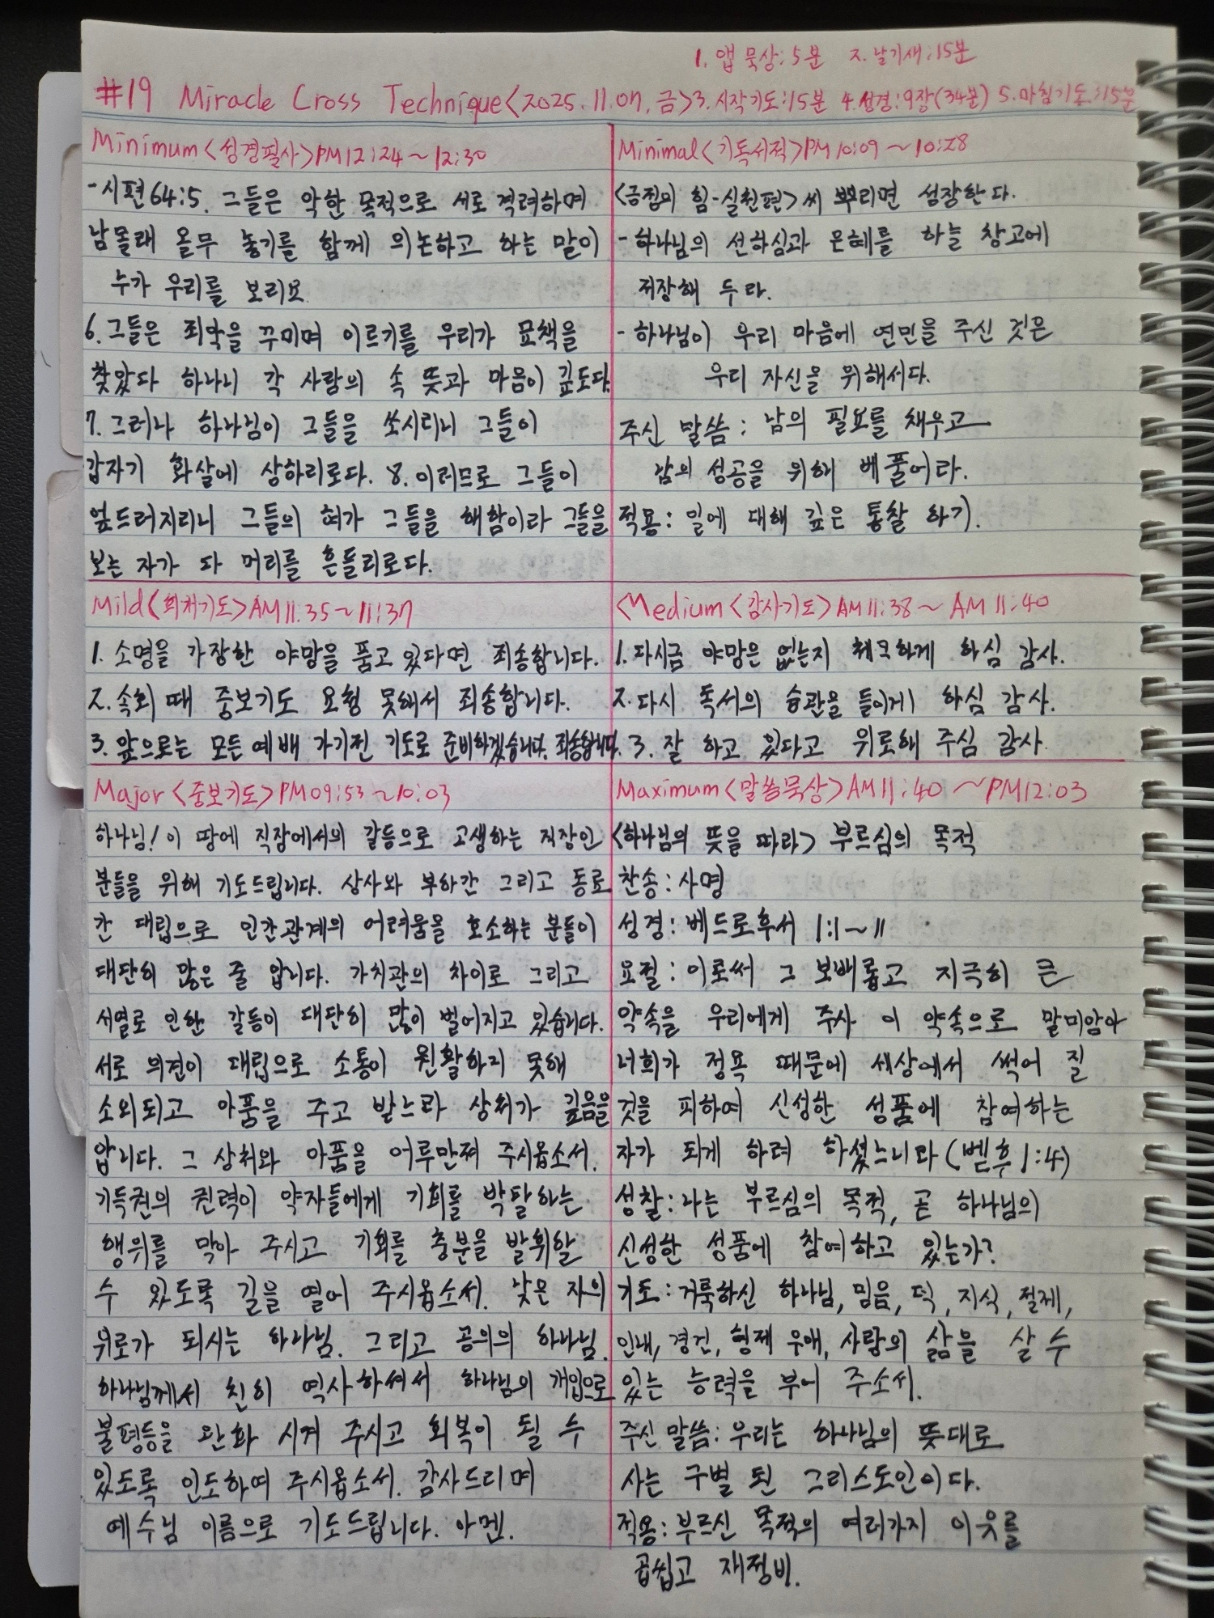 1. 앱 묵상: 5분 2. 날기새: 15분
#19 Miracle Cross Technique <2025. 11. 07. 금> 3. 시작기도: 15분 4. 성경: 9장(34분) 5. 마침기도: 15분
Minimum <성경필사> PM 12:24 ~ 12:30
- 시편 64:5. 그들은 악한 목적으로 서로 격려하며
남몰래 올무 놓기를 함께 의논하고 하는 말이
누가 우리를 보리요
6. 그들은 죄악을 꾸미며 이르기를 우리가 묘책을
찾았다 하나니 각 사람의 속 뜻과 마음이 깊도다.
7. 그러나 하나님이 그들을 쏘시리니 그들이
갑자기 화살에 상하리로다. 8. 이러므로 그들이
엎드러지리니 그들의 혀가 그들을 해함이라 그들을
보는 자가 다 머리를 흔들리로다.
Minimal <기독서적> PM 10:09 ~ 10:28
<긍정의 힘-실천편> 씨 뿌리면 성장한다.
- 하나님의 선하심과 은혜를 하늘 창고에
저장해 두라.
- 하나님이 우리 마음에 연민을 주신 것은
우리 자신을 위해서다.
주신 말씀: 남의 필요를 채우고
남의 성공을 위해 베풀어라.
적용: 일에 대해 깊은 통찰 하기.
Mild <회개기도> AM 11:35 ~ 11:37
1. 소명을 가장한 야망을 품고 있다면 죄송합니다.
2. 속회 때 중보기도 요청 못해서 죄송합니다.
3. 앞으로는 모든 예배 가기전 기도로 준비하겠습니다. 죄송합니다.
<Medium <감사기도> AM 11:38 ~ AM 11:40
1. 다시금 야망은 없는지 체크하게 하심 감사.
2. 다시 독서의 습관을 들이게 하심 감사.
3. 잘 하고 있다고 위로해 주심 감사.
Major <중보기도> PM 09:53 ~ 10:03
하나님! 이 땅에 직장에서의 갈등으로 고생하는 직장인
분들을 위해 기도드립니다. 상사와 부하간 그리고 동료
간 대립으로 인간관계의 어려움을 호소하는 분들이
대단히 많은 줄 압니다. 가치관의 차이로 그리고
서열로 인한 갈등이 대단히 많이 벌어지고 있습니다.
서로 의견이 대립으로 소통이 원활하지 못해
소외되고 아픔을 주고 받느라 상처가 깊음을
압니다. 그 상처와 아픔을 어루만져 주시옵소서.
기득권의 권력이 약자들에게 기회를 박탈하는
행위를 막아 주시고 기회를 충분을 발휘할
수 있도록 길을 열어 주시옵소서. 낮은 자의
위로가 되시는 하나님. 그리고 공의의 하나님.
하나님께서 친히 역사하셔서 하나님의 개입으로
불평등을 완화 시켜 주시고 회복이 될 수
있도록 인도하여 주시옵소서. 감사드리며
예수님 이름으로 기도드립니다. 아멘.
Maximum <말씀묵상> AM 11:40 ~ PM 12:03
<하나님의 뜻을 따라> 부르심의 목적
찬송: 사명
성경: 베드로후서 1:1~11
요절: 이로써 그 보배롭고 지극히 큰
약속을 우리에게 주사 이 약속으로 말미암아
너희가 정욕 때문에 세상에서 썩어 질
것을 피하여 신성한 성품에 참여하는
자가 되게 하려 하셨느니라 (벧후 1:4)
성찰: 나는 부르심의 목적, 곧 하나님의
신성한 성품에 참여하고 있는가?
기도: 거룩하신 하나님, 믿음, 덕, 지식, 절제,
인내, 경건, 형제 우애, 사랑의 삶을 살 수
있는 능력을 부어 주소서.
주신 말씀: 우리는 하나님의 뜻대로
사는 구별 된 그리스도인이다.
적용: 부르신 목적의 여러가지 이웃를
곱씹고 재정비.